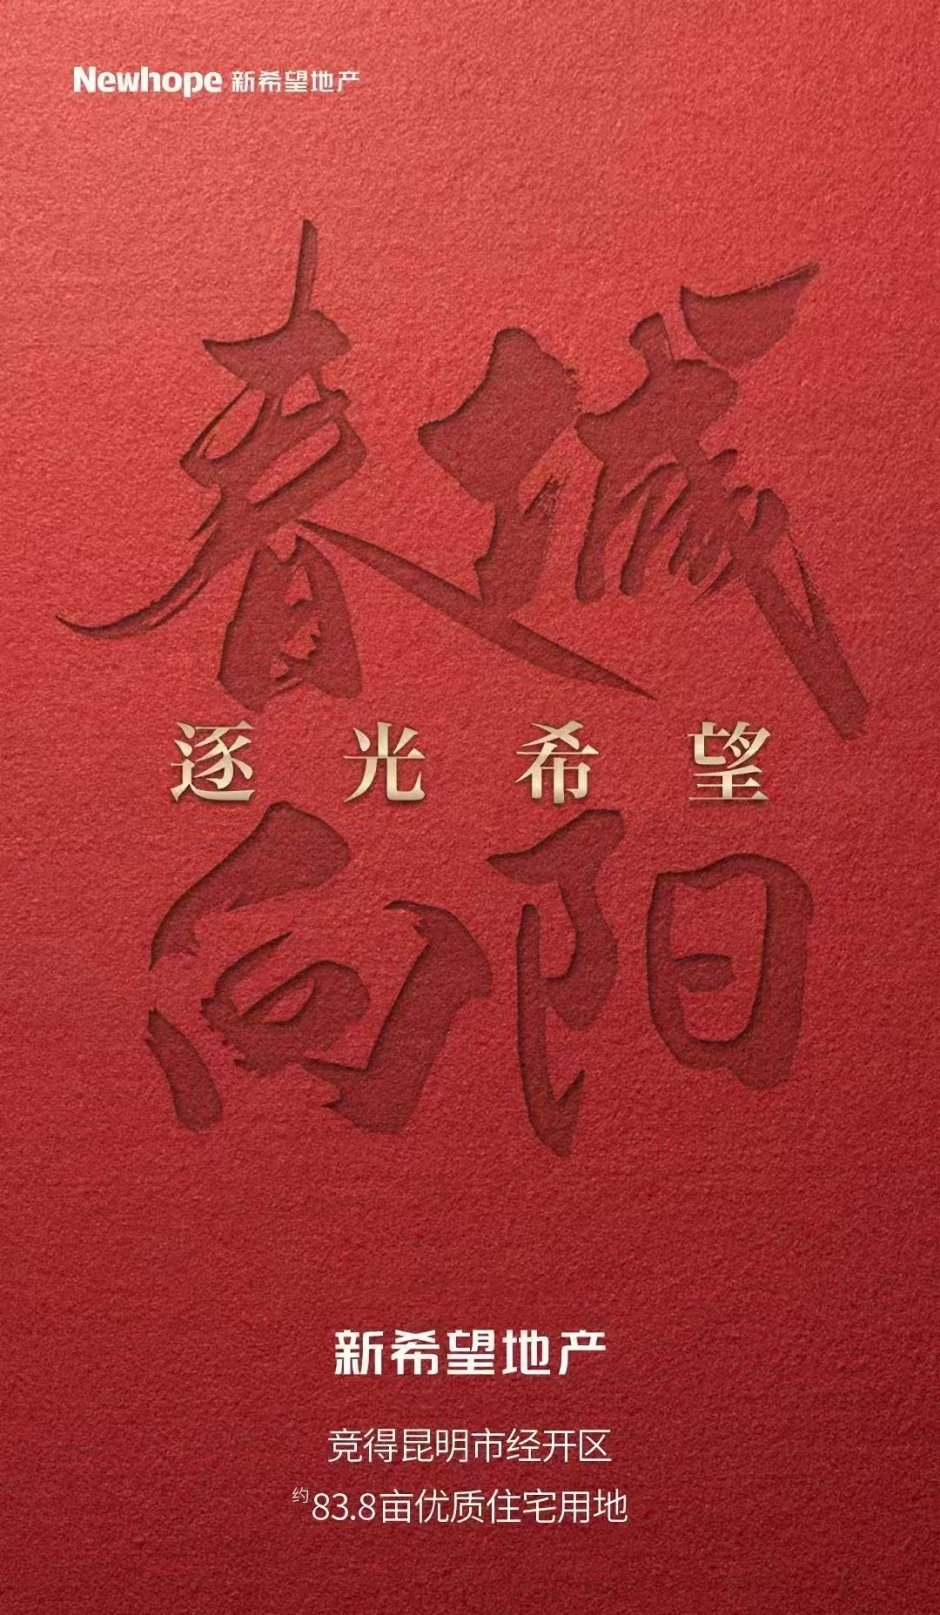 Newhope 新希望地产
春城
逐光希望
向阳
新希望地产
竞得昆明市经开区
约83.8亩优质住宅用地